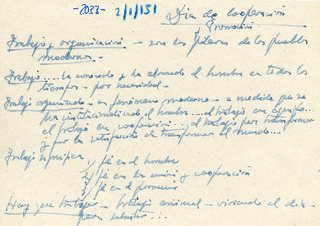 -2022- 2/1/151
Día de cooperación
Promoción
Trabajo y organización - son los pilares de los pueblos
modernos -
Trabajo ... ha conocido y ha abrumado al hombre en todos los
tiempos - por necesidad -
Trabajo organizado - es fenómeno moderno - a medida que se
ha institucionalizado el hombre ... el trabajo en equipo ...
el trabajo en cooperación ... el trabajo para transformar
y por la satisfacción de transformar el mundo ...
Trabajo significa
1/ fe en el hombre
2/ fe en la unión y cooperación
3/ fe en el porvenir
Hay que trabajar - trabajo animal - viviendo al día -
para subsistir ...